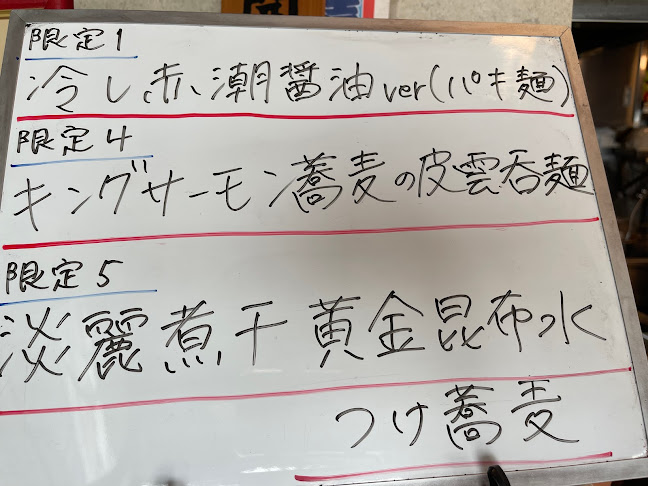 限定1
冷し赤潮醤油ver(パキ麺)
限定4
キングサーモン蕎麦の皮雲呑麺
限定5
淡麗煮干黄金昆布水
つけ蕎麦